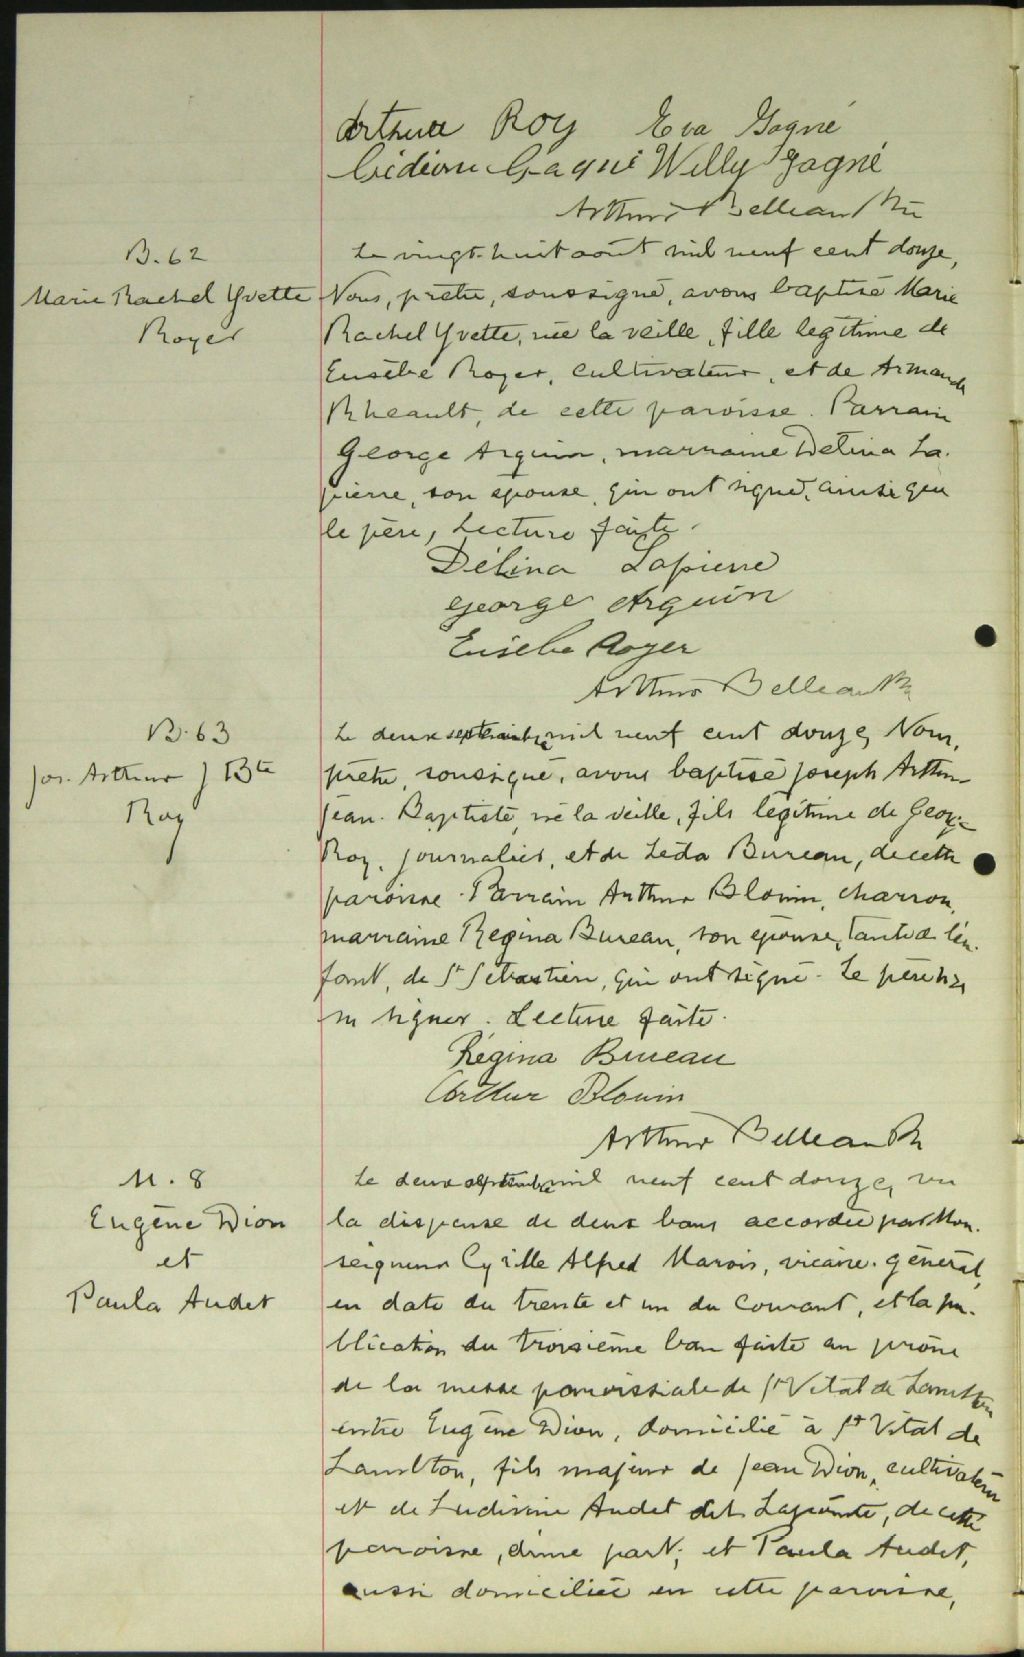 Arthur Roy Eva Gagné
Gédéon Gagné Willy Gagné
Arthur Belleau Ptre
B. 62
Marie Rachel Yvette
Royer
Le vingt-huit août mil neuf cent douze,
Nous, prêtre, soussigné, avons baptisé Marie
Rachel Yvette, née la veille, fille légitime de
Eusèbe Royer, cultivateur, et de Armande
Rheault, de cette paroisse. Parrain
George Arguin, marraine Delina La-
pierre, son épouse, qui ont signé, ainsi que
le père, Lecture faite.
Délina Lapierre
George Arguin
Eusèbe Royer
Arthur Belleau Ptre
B. 63
Jos. Arthur J Bte
Roy
Le deux septembre mil neuf cent douze, Nous,
prêtre, soussigné, avons baptisé Joseph Arthur
Jean-Baptiste, né la veille, fils légitime de George
Roy, journalier, et de Léda Bureau, de cette
paroisse. Parrain Arthur Blouin, charron,
marraine Régina Bureau, son épouse, tante de l'en-
fant, de St Sébastien, qui ont signé. Le père n'a
su signer. Lecture faite.
Régina Bureau
Arthur Blouin
Arthur Belleau Ptre
M. 8
Eugène Dion
et
Paula Audet
Le deux septembre mil neuf cent douze, vu
la dispense de deux bans accordée par Mon-
seigneur Cyrille Alfred Marois, vicaire-général,
en date du trente et un du courant, et la pu-
blication du troisième ban faite au prône
de la messe paroissiale de St Vital de Lambton
entre Eugène Dion, domicilié à St Vital de
Lambton, fils majeur de Jean Dion, cultivateur
et de Ludivine Audet dit Lapointe, de cette
paroisse, d'une part; et Paula Audet,
aussi domiciliée en cette paroisse,